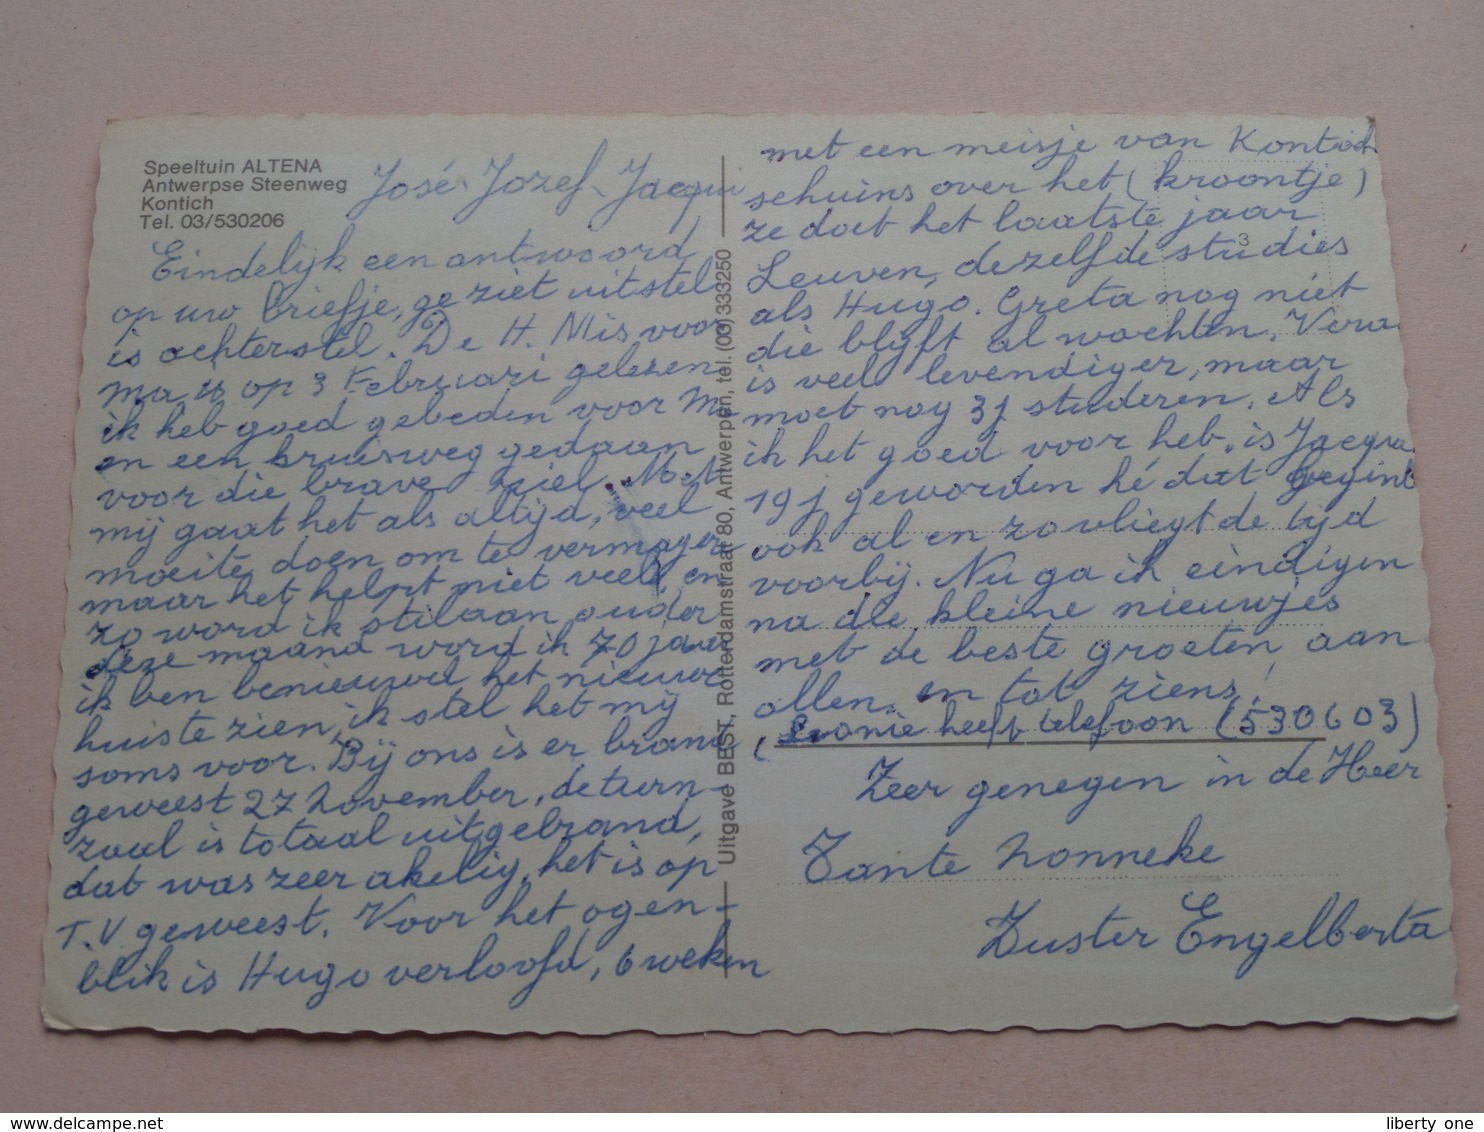 Speeltuin ALTENA
Antwerpse Steenweg
Kontich
Tel. 03/530206
José. Jozef. Jacqui
Eindelijk een antwoord
op uw briefje, ge ziet uitstel
is achterstel. De H. Mis voor
Ma is op 3 Februari gelezen
ik heb goed gebeden voor Ma
en een kruisweg gedaan
voor die brave ziel. Met
mij gaat het als altijd, veel
moeite doen om te vermageren
maar het helpt niet veel, en
zo word ik stilaan ouder
deze maand word ik 70 jaar
ik ben benieuwd het nieuwe
huis te zien, ik stel het mij
soms voor. Bij ons is er brand
geweest 27 november, de turn-
zaal is totaal uitgebrand,
dat was zeer akelig, het is op
T.V geweest. Voor het ogen-
blik is Hugo verloofd, 6 weken
Uitgave BEST, Rotterdamstraat 80, Antwerpen, tel. (03) 333250
met een meisje van Kontich
schuins over het (kroontje)
ze doet het laatste jaar
3
Leuven, dezelfde studies
als Hugo. Greta nog niet
die blijft al wachten. Vera
is veel levendiger, maar
moet nog 3j studeren. Als
ik het goed voor heb, is Jacqui
19j geworden hé dat begint
ook al en zo vliegt de tijd
voorbij. Nu ga ik eindigen
na die kleine nieuwjes
met de beste groeten aan
allen, en tot ziens!
(Leonie heeft telefoon (530603)
Zeer genegen in de Heer
Tante nonneke
Zuster Engelberta
liberty one